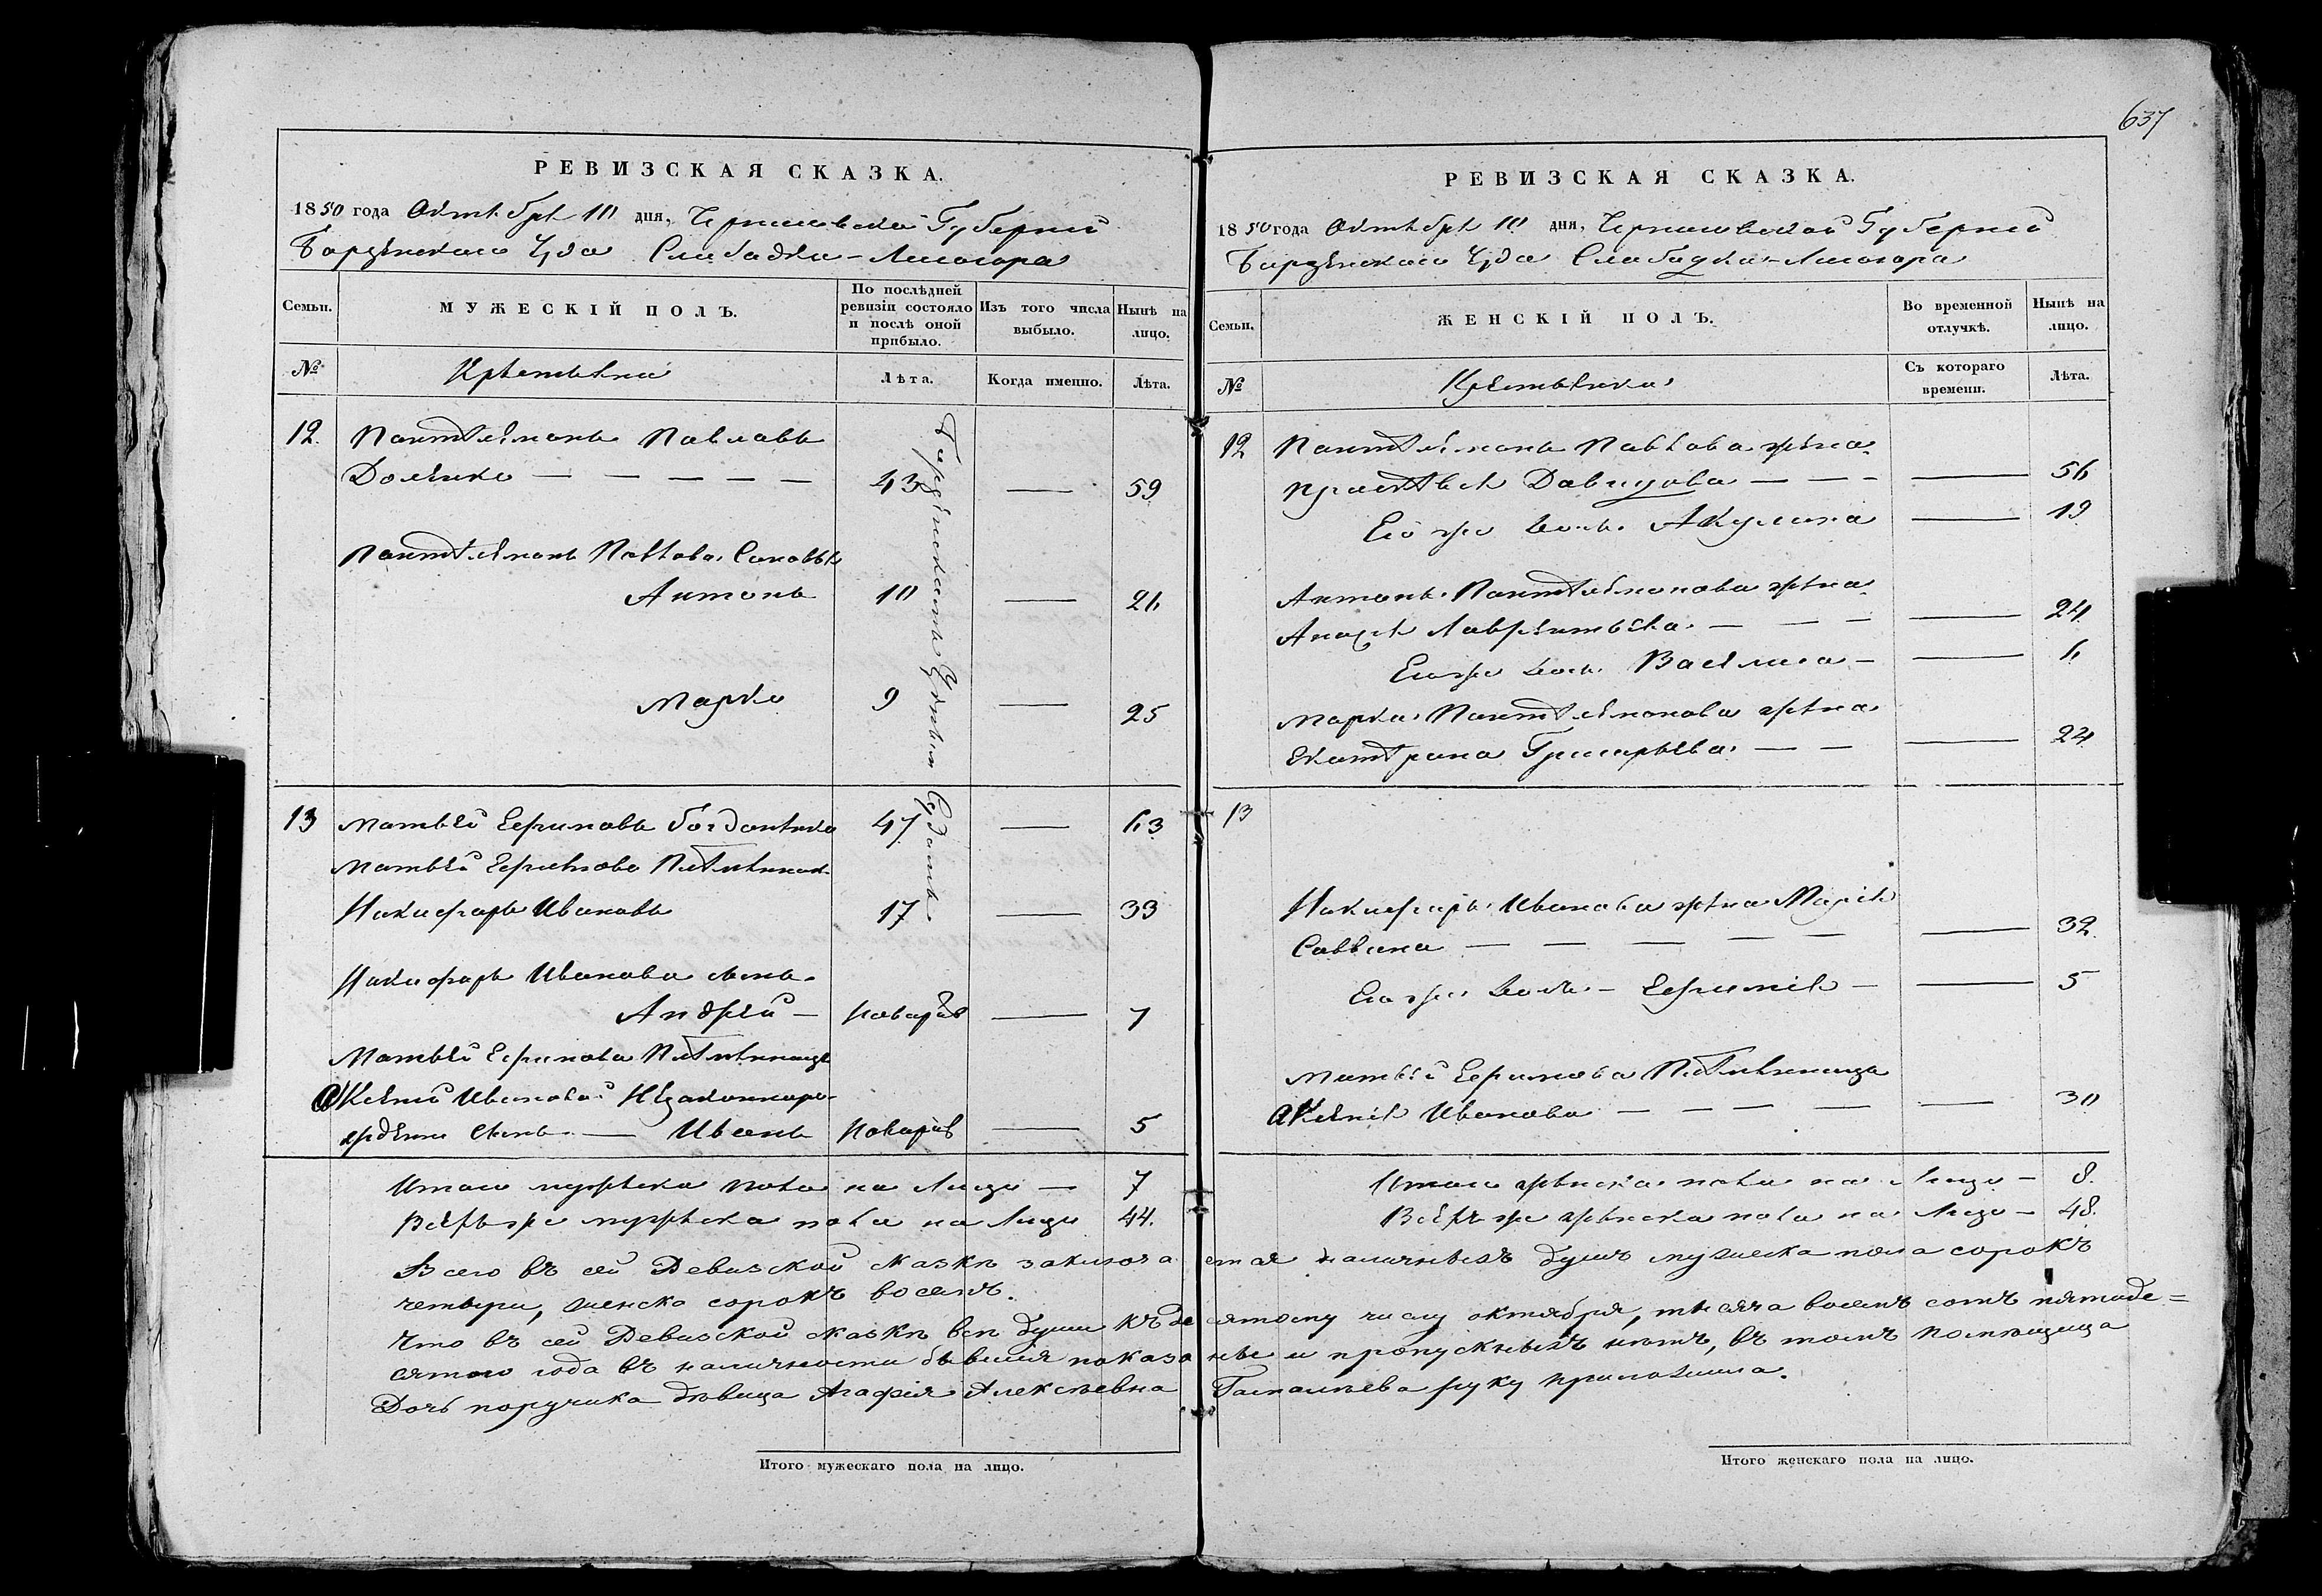 637
РЕВИЗСКАЯ СКАЗКА.
1850 года Октября 10 дня, Черниговской Губернии
Борзенскаго Уѣзда Слободка-Лисогора
Семьи.
МУЖЕСКІЙ ПОЛЪ.
По послѣдней ревизіи состояло и послѣ оной прибыло.
Изъ того числа выбыло.
Нынѣ на лицо.
№
Крестьяне
Лѣта.
Когда именно.
Лѣта.
12. Пантелемонъ Павловъ
43 — 59
Пантелемона Павлова Сыновья
Антонъ 10 — 26
Марко 9 — 25
Борзенскимъ Уѣзднымъ Судомъ
13 Матвѣй Ефимовъ 47 — 63
Матвѣя Ефимова Племянникъ
Никифоръ Ивановъ 17 — 33
Никифора Иванова сынъ
Андрей — новорож — 7
Матвѣя Ефимова Племянницы
Ксеніи Ивановой Незаконноро-
жденный сынъ — Иванъ новорож — 5
Итого мужеска пола на Лицо — 7
Всѣхъ же мужеска пола на Лицо 44.
РЕВИЗСКАЯ СКАЗКА.
1850 года Октября 10 дня, Черниговской Губерніи
Борзенскаго Уѣзда Слободка-Лисогора
Семьи.
ЖЕНСКІЙ ПОЛЪ.
Во временной отлучкѣ.
Нынѣ на лицо.
№
Крестьянки
Съ котораго времени.
Лѣта.
12 Пантелемона Павлова жена
Праскевья Давидова — — — — 56
Его же дочь Акулина — 19
Антона Пантелемонова жена
Лаврентьева — — — — 24
Его же дочь Василиса — — 6
Марка Пантелемонова жена
Екатерина Григорьева — — — 24
13
Никифора Иванова жена Марія
Саввина — — — — — — 32
Его же дочь — Ефимія — — 5
Матвѣя Ефимова Племянница
Ксенія Иванова — — — — — 30
Итого женска пола на Лицо — 8.
Всѣхъ же женска пола на Лицо — 48.
Всего въ сей Ревизской сказкѣ заключается наличныхъ душъ мужеска пола сорокъ
четыри, женска сорокъ восемь.
Что въ сей Ревизской сказкѣ всѣ души къ десятому числу октября, тысяча восемь сотъ пятиде=
сятого года въ наличности бывшія показаны и пропускныхъ нѣтъ, въ томъ помѣщица
Дочь поручика дѣвица Агафія Алексѣевна руку приложила.
Итого мужескаго пола на лицо.
Итого женскаго пола на лицо.